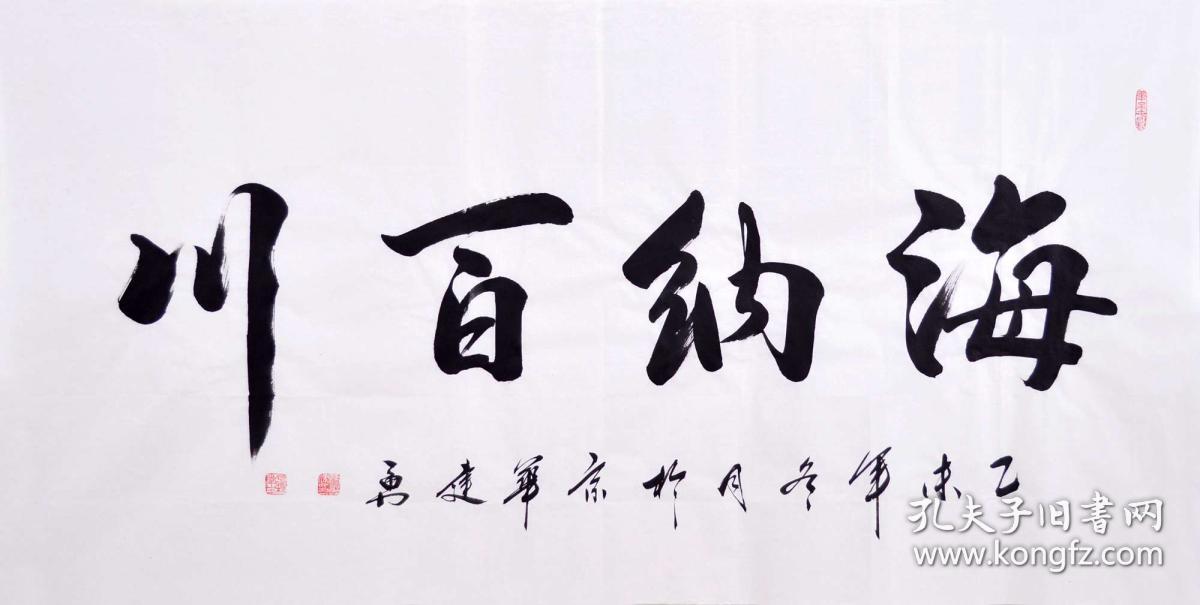 海纳百川
乙未年冬月於京华建勇
孔夫子旧书网
www.kongfz.com